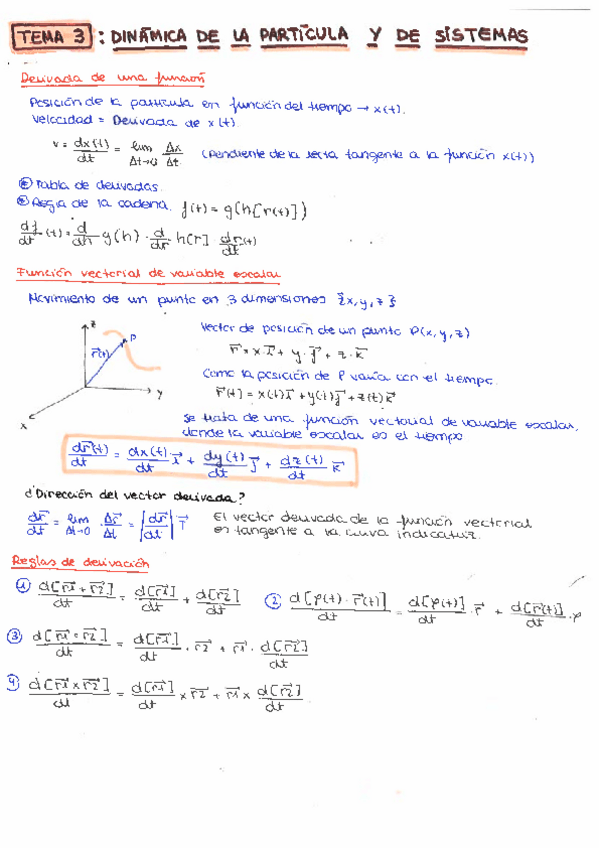 TEMA 3 : DINÁMICA DE LA PARTÍCULA Y DE SISTEMAS
Derivada de una función
Posición de la partícula en función del tiempo → x(t).
Velocidad = Derivada de x(t).
v = dx(t)/dt = lim Δt→0 Δx/Δt (Pendiente de la recta tangente a la función x(t))
Tabla de derivadas.
Regla de la cadena. f(t) = g(h[r(t)])
df/dt (t) = d/dh g(h) · d/dr h[r] dr/dt (t)
Función vectorial de variable escalar
Movimiento de un punto en 3 dimensiones {x, y, z}
z
P
r⃗(t)
y
x
Vector de posición de un punto P(x, y, z)
r⃗ = x·i⃗ + y·j⃗ + z·k⃗
Como la posición de P varía con el tiempo.
r⃗(t) = x(t)i⃗ + y(t)j⃗ + z(t)k⃗
Se trata de una función vectorial de variable escalar,
donde la variable escalar es el tiempo
dr⃗(t)/dt = dx(t)/dt i⃗ + dy(t)/dt j⃗ + dz(t)/dt k⃗
¿Dirección del vector derivada?
dr⃗/dt = lim Δt→0 · Δr⃗/Δt = |dr⃗/dt| T⃗ El vector derivada de la función vectorial
es tangente a la curva indicatriz.
Reglas de derivación
1) d[r⃗1 + r⃗2]/dt = d[r⃗1]/dt + d[r⃗2]/dt 2) d[φ(t) · r⃗(t)]/dt = d[φ(t)]/dt · r⃗ + d[r⃗(t)]/dt · φ
3) d[r⃗1 · r⃗2]/dt = d[r⃗1]/dt · r⃗2 + r⃗1 · d[r⃗2]/dt
4) d[r⃗1 × r⃗2]/dt = d[r⃗1]/dt × r⃗2 + r⃗1 × d[r⃗2]/dt